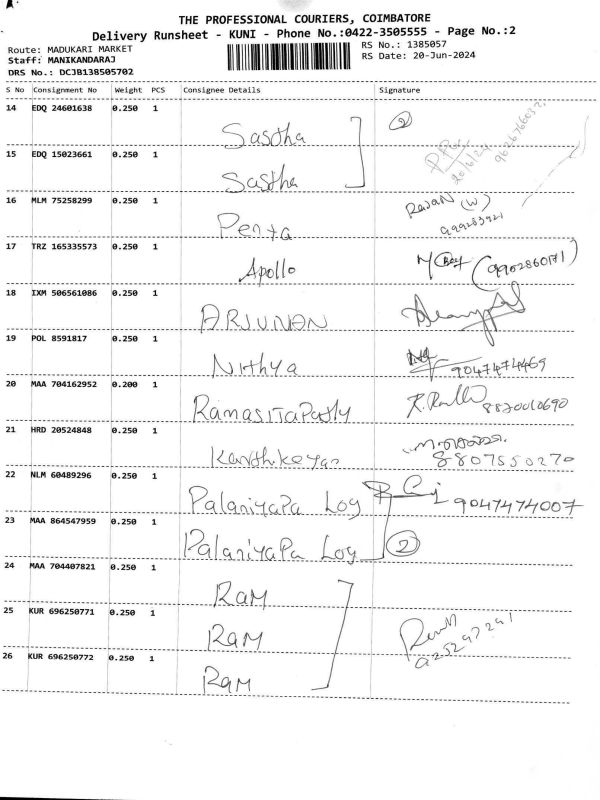 THE PROFESSIONAL COURIERS, COIMBATORE
Delivery Runsheet - KUNI - Phone No.:0422-3505555 - Page No.:2
Route: MADUKARI MARKET
RS No.: 1385057
Staff: MANIKANDARAJ
RS Date: 20-Jun-2024
DRS No.: DCJB138505702
S No Consignment No Weight PCS Consignee Details Signature
14 EDQ 24601638 0.250 1 Sastha 2
20/6/24
15 EDQ 15023661 0.250 1 Sastha
16 MLM 75258299 0.250 1 Penta Rajan (W)
17 TRZ 165335573 0.250 1 Apollo (9902860171)
18 IXM 506561086 0.250 1 ARJUNAN
19 POL 8591817 0.250 1 Nithya 9047474469
20 MAA 704162952 0.200 1 8870010690
21 HRD 20524848 0.250 1 Karthikeyan
8807550270
22 NLM 60489296 0.250 1 Palaniyapa Log 9047474007
23 MAA 864547959 0.250 1 Palaniyapa Log 2
24 MAA 704407821 0.250 1 Ram
25 KUR 696250771 0.250 1 Ram
26 KUR 696250772 0.250 1 Ram